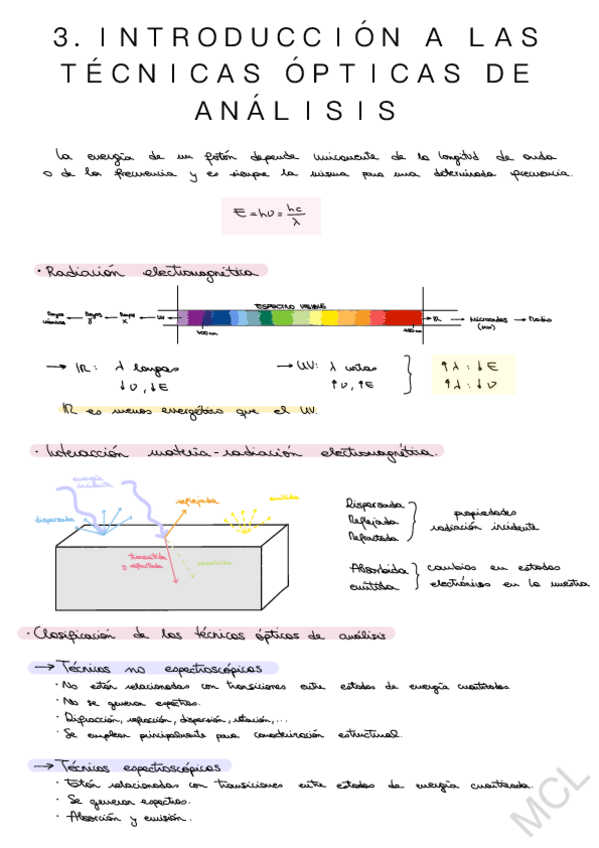 3. INTRODUCCIÓN A LAS
TÉCNICAS ÓPTICAS DE
ANÁLISIS
La energía de un fotón depende únicamente de la longitud de onda
o de la frecuencia y es siempre la misma para una determinada frecuencia.
E = hν = hc/λ
· Radiación electromagnética
ESPECTRO VISIBLE
Rayos cósmicos ← Rayos γ ← Rayos X ← UV
IR → Microondas (MW) → Radio
400nm
→ IR: λ largas
↓ν, ↓E
→ UV: λ cortas
↑ν, ↑E
↑λ : ↓E
↑λ : ↓ν
IR es menos energético que el UV.
· Interacción materia-radiación electromagnética.
energía
incidente
dispersada
reflejada
emitida
transmitida
y refractada
absorbida
Dispersada
Reflejada
Refractada
propiedades
radiación incidente
Absorbida
emitida
cambios en estados
electrónicos en la muestra
· Clasificación de las técnicas ópticas de análisis
→ Técnicas no espectroscópicas
· No están relacionadas con transiciones entre estados de energía cuantizados
· No se generan espectros.
· Difracción, refracción, dispersión, rotación,...
· Se emplean principalmente para caracterización estructural.
→ Técnicas espectroscópicas
· Están relacionadas con transiciones entre estados de energía cuantizada.
· Se generan espectros.
· Absorción y emisión.
MCL